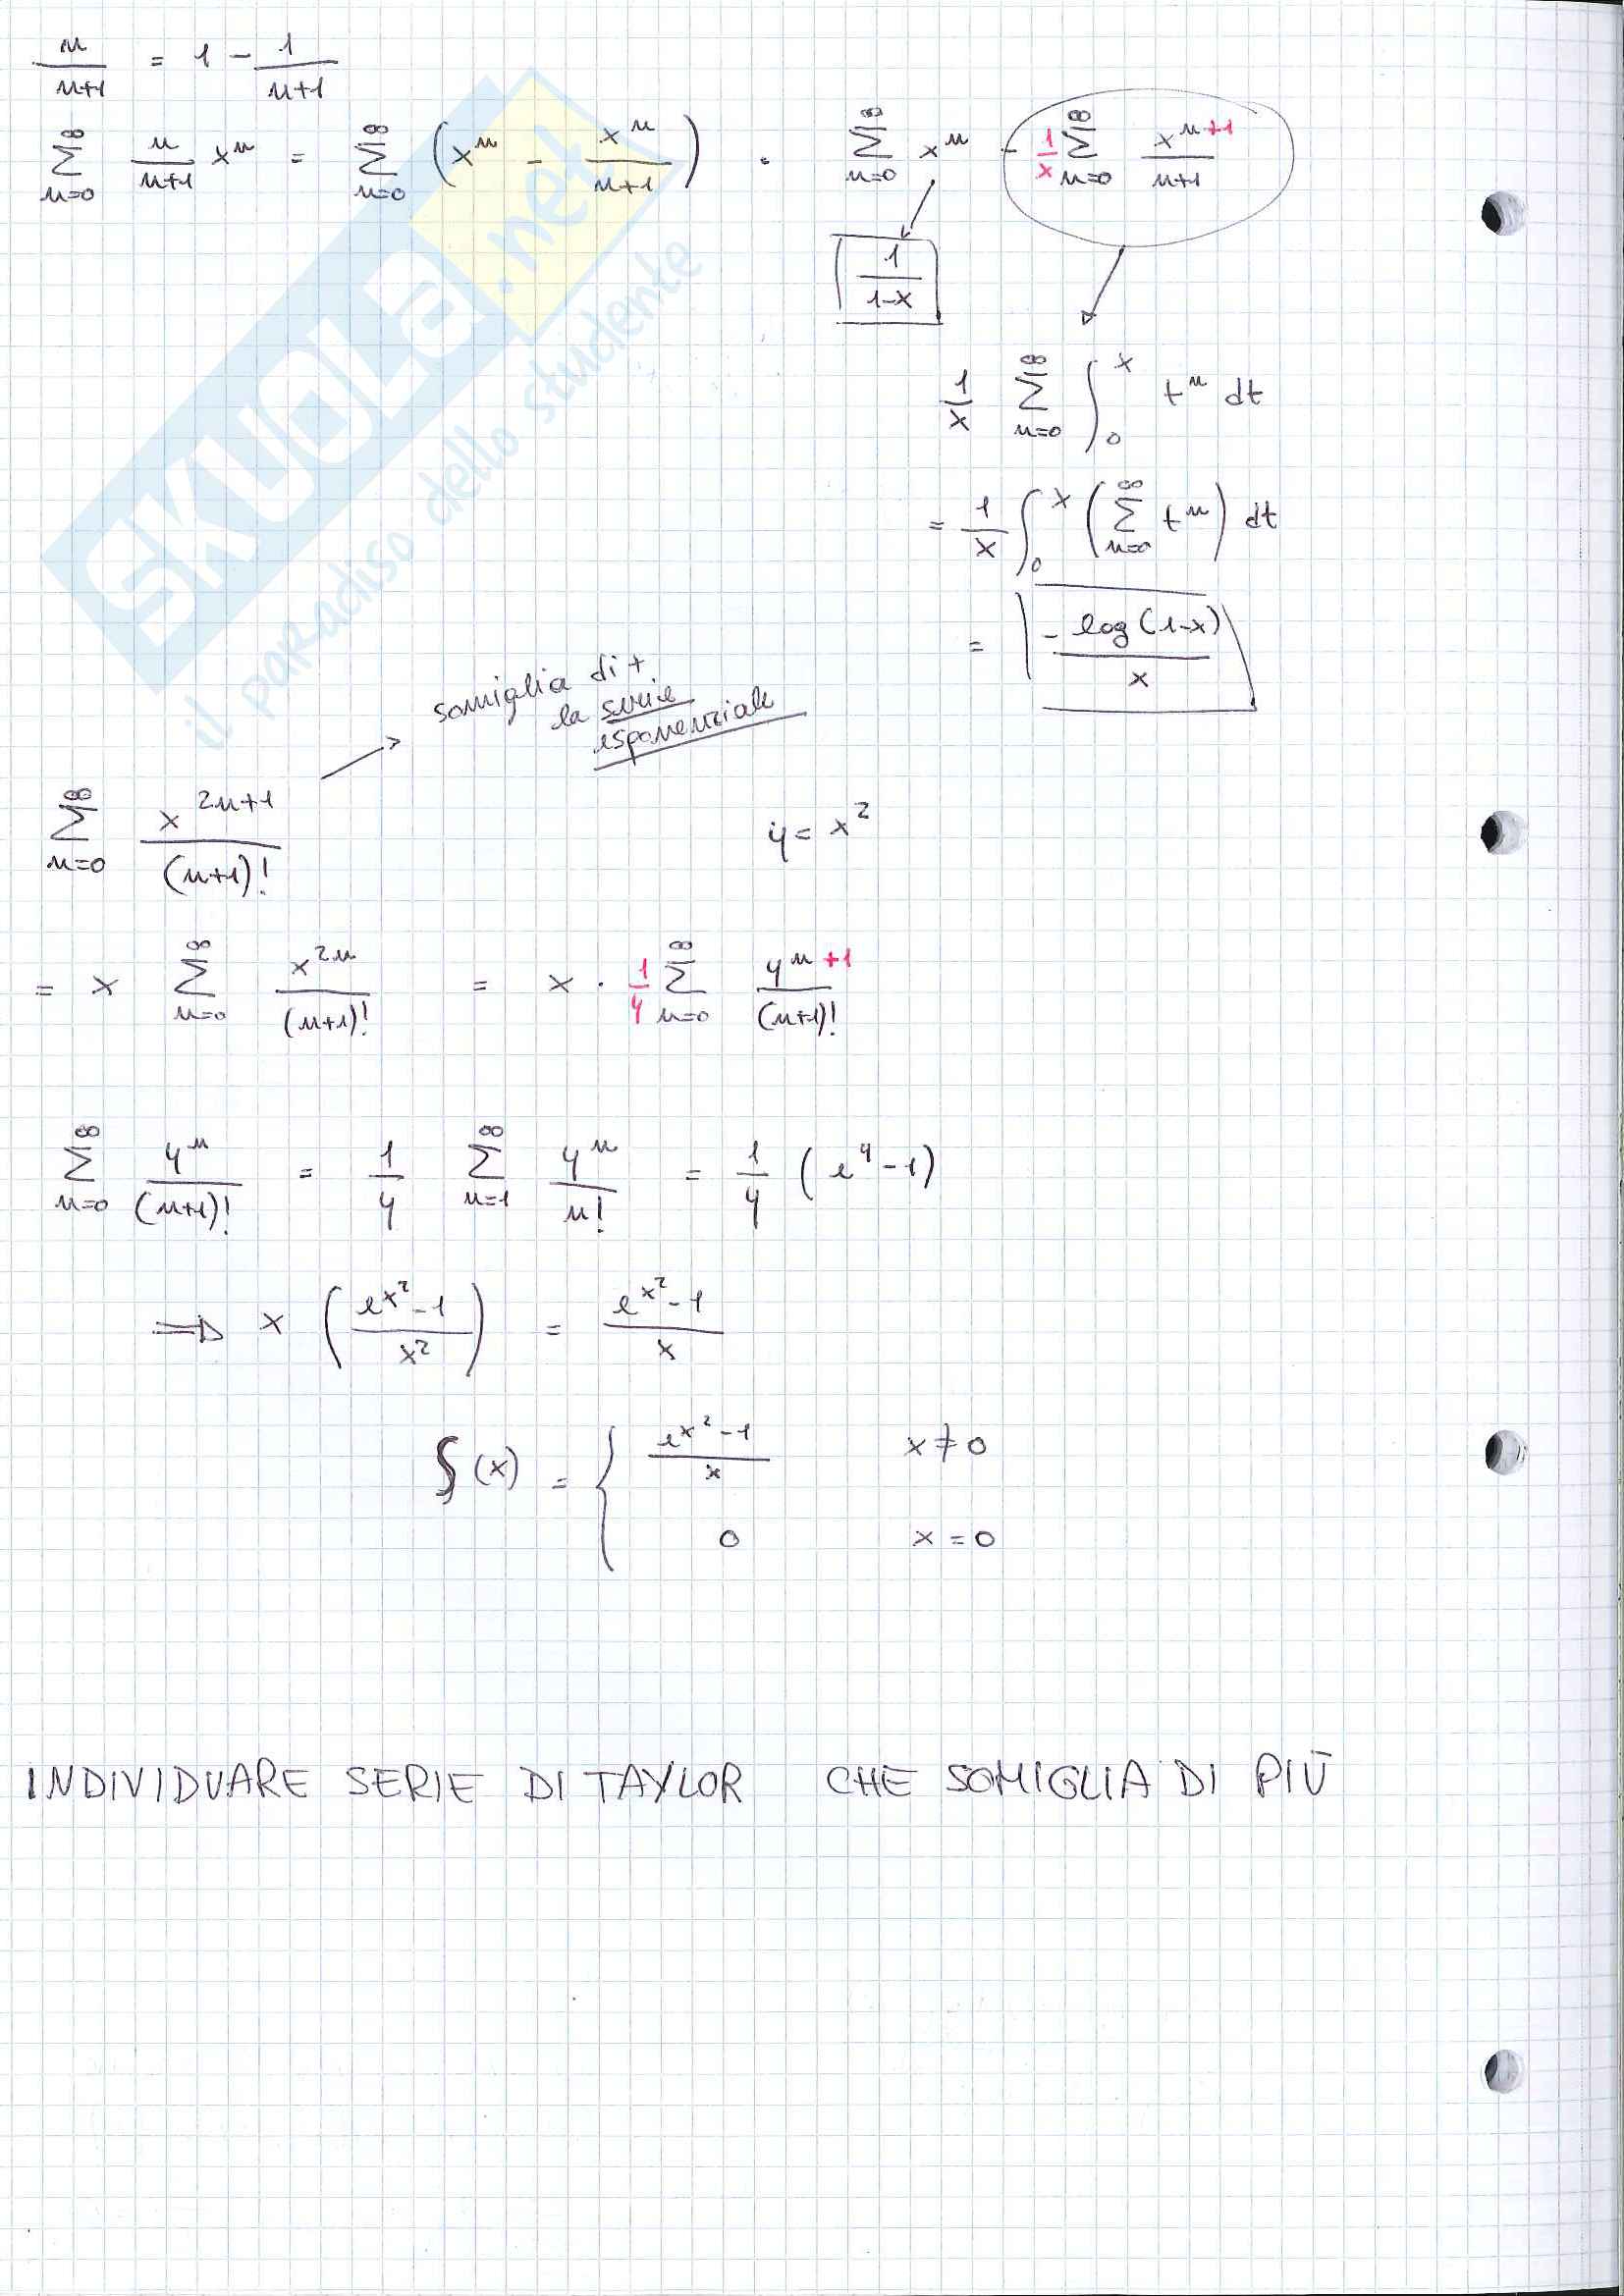 n/(n+1) = 1 - 1/(n+1)
∑_{n=0}^{∞} n/(n+1) x^n = ∑_{n=0}^{∞} (x^n - x^n/(n+1)) = ∑_{n=0}^{∞} x^n - 1/x ∑_{n=0}^{∞} x^{n+1}/(n+1)
1/(1-x)
1/x ∑_{n=0}^{∞} ∫_0^x t^n dt
= 1/x ∫_0^x (∑_{n=0}^{∞} t^n) dt
= - log(1-x)/x
somiglia di +
la serie
esponenziale
∑_{n=0}^{∞} x^{2n+1}/(n+1)! y = x^2
= x ∑_{n=0}^{∞} x^{2n}/(n+1)! = x · 1/y ∑_{n=0}^{∞} y^{n+1}/(n+1)!
∑_{n=0}^{∞} y^n/(n+1)! = 1/y ∑_{n=1}^{∞} y^n/n! = 1/y (e^y - 1)
⟹ x ((e^{x^2} - 1)/x^2) = (e^{x^2} - 1)/x
f(x) = { (e^{x^2} - 1)/x x ≠ 0
0 x = 0
INDIVIDUARE SERIE DI TAYLOR CHE SOMIGLIA DI PIÙ
SKUOLA.net
il paradiso dello studente